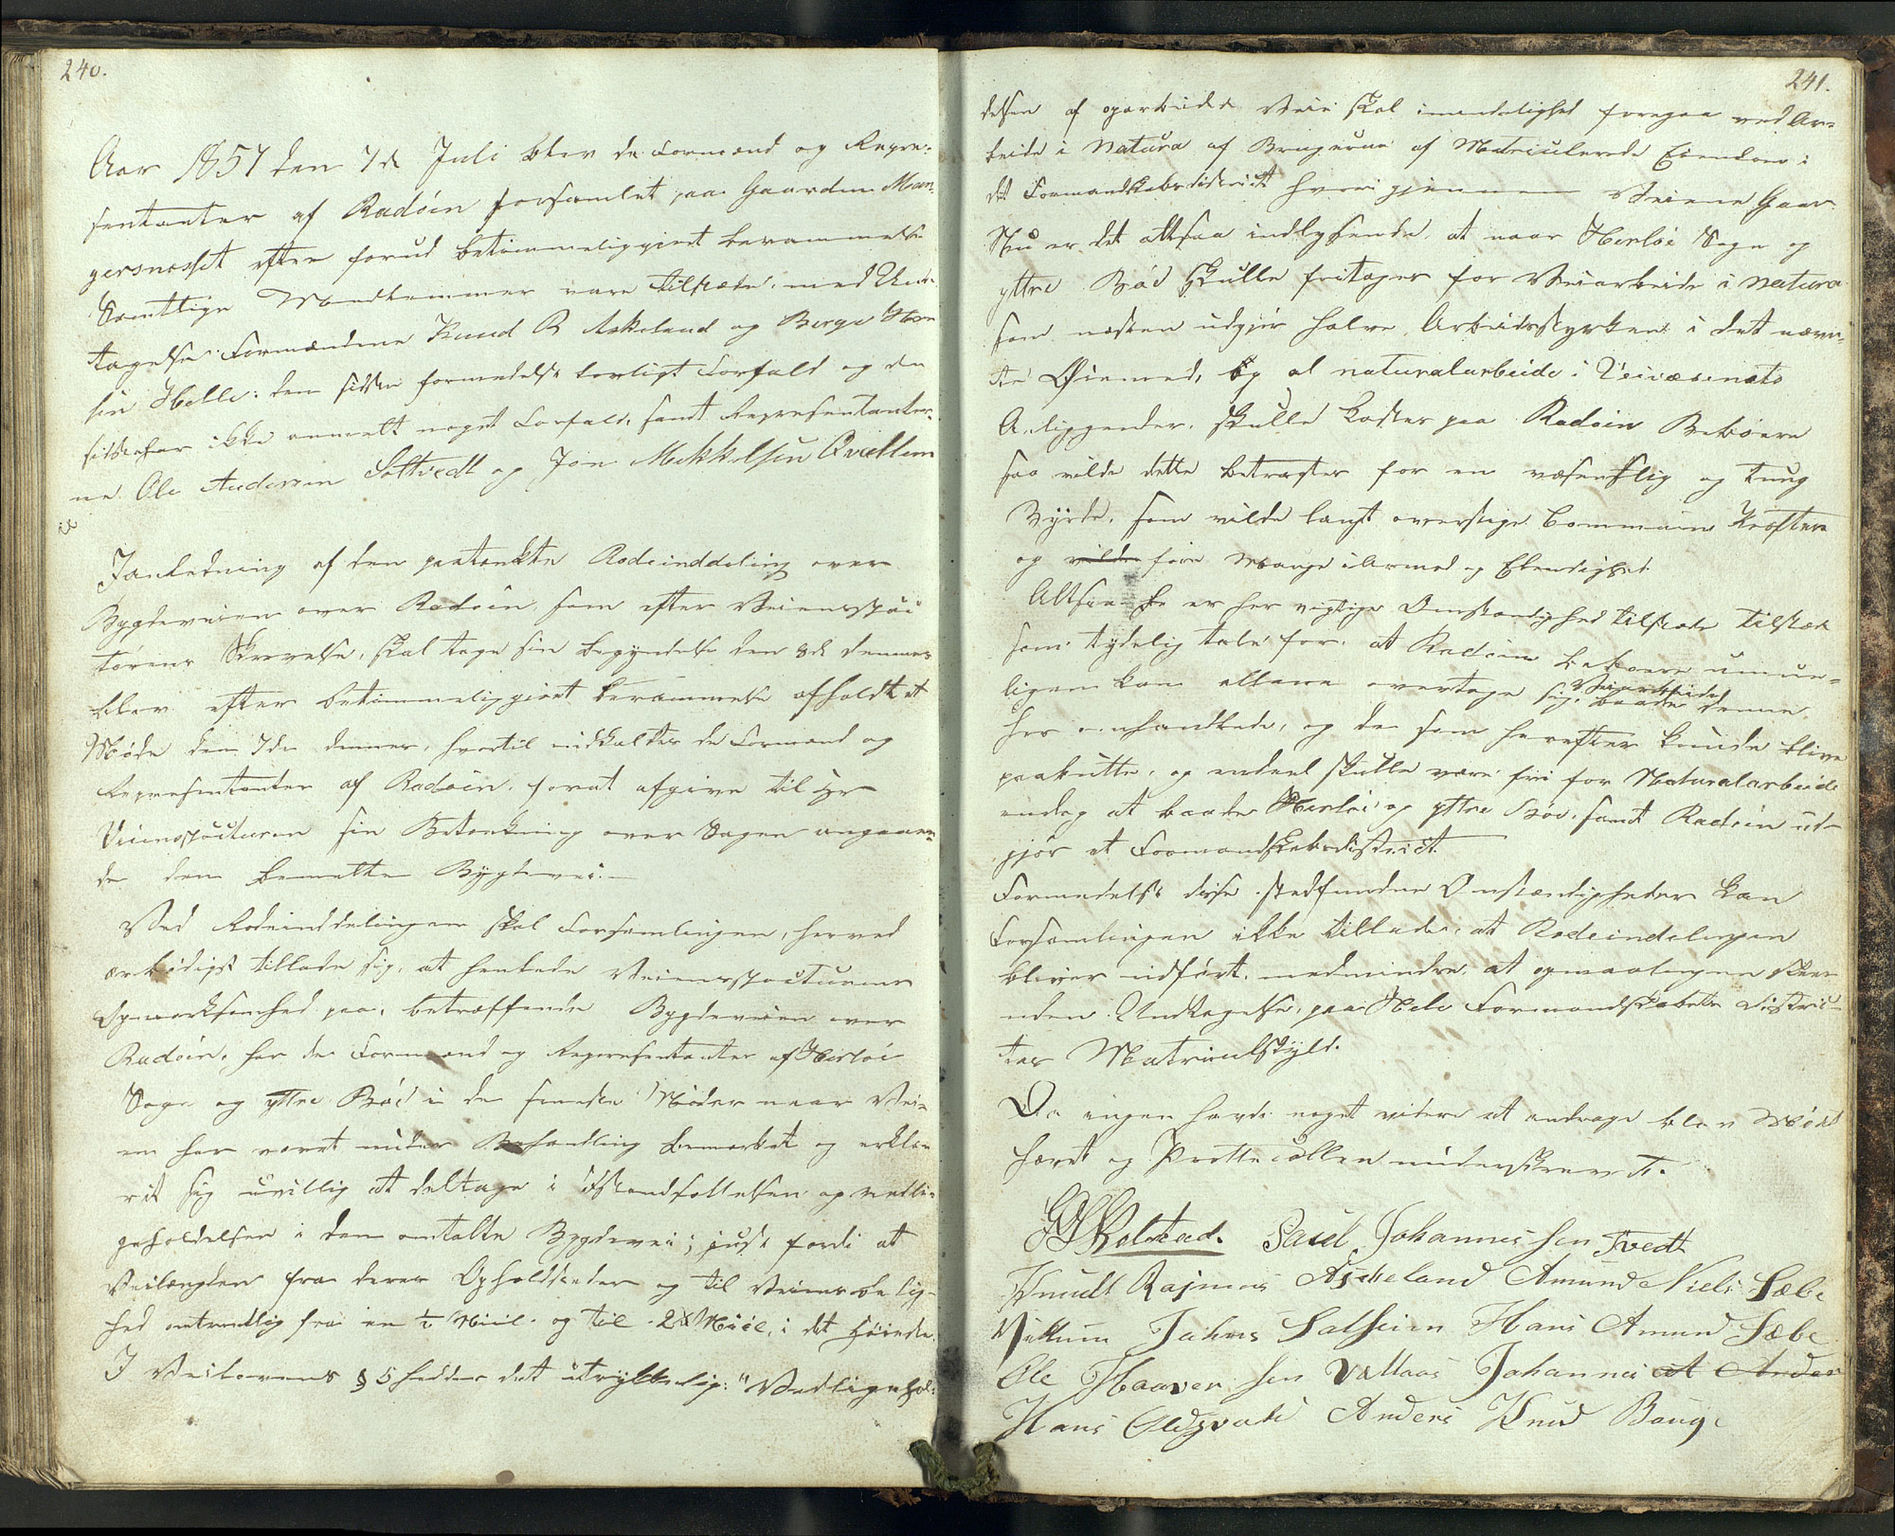 240.
Aar 1857 den 7de Juli blev de Formænd og Repræ-
sentanter af Radöen forsamlet paa Gaarden Man-
gersnesset efter forud betimmeliggjort berammelse
Samtlige Medlemmer vare tilstæde, med Und-
tagelse Formændene Knud R Askeland og Berge Han
sen Helle: den sidste formedelst lovligt Forfald og den
første har ikke anmelt noget Forfald, samt Repræsentanter-
ne Ole Andersen Soltvedt og Jon Mikkelsen Qvallem
I anledning af den paatænkte Rodeinddeling over
Bygdeveien over Radöen, som efter Veiinspec
törens Skrivelse, skal tage sin begyndelse den 8de dennes
blev efter betimmeliggjort berammelse afholdt et
Möde den 7de dennes, hvortil indkaldtes de Formænd og
Repræsentanter af Radöen, forat afgive til Hr
Veiinspecteuren sin Betænkning over Sagen angaaen-
de den bemeldte Bygdevei.
Ved Rodeinddelingen skal Forsamlingen, herved
ærbödigst tillade sig, at henlede Veiinspecteurens
Opmærksomhed paa, betræffende Bygdeveien over
Radöen, har de Formænd og Repræsentanter af Herlöe
Sogn og yttre Böe i de fleste Möder naar Vei-
en har været under Behandling bemærket og erklæ-
ret sig uvillig at deltage i Istandsættelsen og vedli-
geholdelsen i den omtalte Bygdevei; just fordi at
Veilængden fra deres Opholdsteder og til Veiens belig-
hed omtrentlig fra en ½ Miil og til 2½ Miil, i det höieste.
I Veilovens § 5 hedder det udtrykkelig: "Vedligehol-
241.
delsen af oparbeidede Veie skal imidlertid foregaa ved Ar-
beide i Natura af Brugerne af Matriculerede Eiendom i
det Formandskabsdistrict hvori gjennem Veiene Gaar.
Nu er det altsaa indlysende, at naar Herlöe Sogn og
yttre Böe skulle fritages for Veiarbeide i Natura
som næsten udgjör halve Arbeidsstyrken i det nævn-
te Öiemed, og al naturalarbeide i Veivæsenets
Anliggender, skulle kastes paa Radöens Beboere
saa vilde dette betragtes for en væsentlig og tung
Byrde, som vilde langt overstige Communens Kræfter
og vilde före Mange i Armod og Elendighed.
Altsaa er her vigtige Omstændighed tilstæde tilstæde
som tydelig taler for, at Radöens beboere umue-
ligen kan allene overtage sig Veiarbeidet baade denne
her omhandlede, og de som herefter kunde blive
paabudte, og endeel skulle være fri for Naturalarbeide
endog at baade Herlöe og yttre Böe, samt Radöen ud-
gjör et Formandskabsdistrict.
Formedelst disse stedfundne Omstændigheder kan
Forsamlingen ikke tillade, at Rodeindelingen
bliver udfört, medmindre at opmaalingen skeer
uden Undtagelse, paa Hele Formandskabets Distric-
tes Matriculskyld.
Da ingen havde noget videre at andrage blev Mödet
hævet og Protocollen underskrevet.
Skelstad. Saul Johannessen Tvedt
Knudt Rasmus Askeland Amund Niels Sæbe
Villum Johns Salheim Hans Amund Sæbe
Ole Haaversen Vallaas Johannes at Ander
Hans Oldsvold Anders Knud Bouge